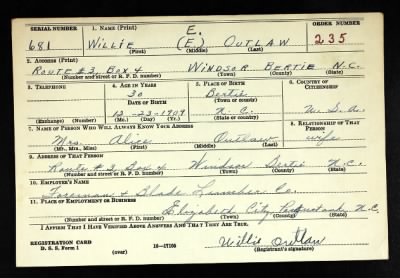 SERIAL NUMBER 1. NAME (Print) ORDER NUMBER
E.
681 WILLIE (E.) OUTLAW 235
(First) (Middle) (Last)
2. ADDRESS (Print)
ROUTE #3 BOX 4 WINDSOR BERTIE N.C.
(Number and street or R. F. D. number) (Town) (County) (State)
3. TELEPHONE 4. AGE IN YEARS 5. PLACE OF BIRTH 6. COUNTRY OF CITIZENSHIP
30 Bertie
DATE OF BIRTH (Town or county)
12-23-1909 N.C. U.S.A.
(Exchange) (Number) (Mo.) (Day) (Yr.) (State or country)
7. NAME OF PERSON WHO WILL ALWAYS KNOW YOUR ADDRESS 8. RELATIONSHIP OF THAT PERSON
Mrs. Alice Outlaw wife
(Mr., Mrs., Miss) (First) (Middle) (Last)
9. ADDRESS OF THAT PERSON
Route #3 Box 4 Windsor Bertie N.C.
(Number and street or R. F. D. number) (Town) (County) (State)
10. EMPLOYER'S NAME
Foreman & Blades Lumber Co.
11. PLACE OF EMPLOYMENT OR BUSINESS
Elizabeth City Pasquotank N.C.
(Number and street or R. F. D. number) (Town) (County) (State)
I AFFIRM THAT I HAVE VERIFIED ABOVE ANSWERS AND THAT THEY ARE TRUE.
REGISTRATION CARD
D. S. S. Form 1 (over) 16-17105 Willie Outlaw
(Registrant's signature)